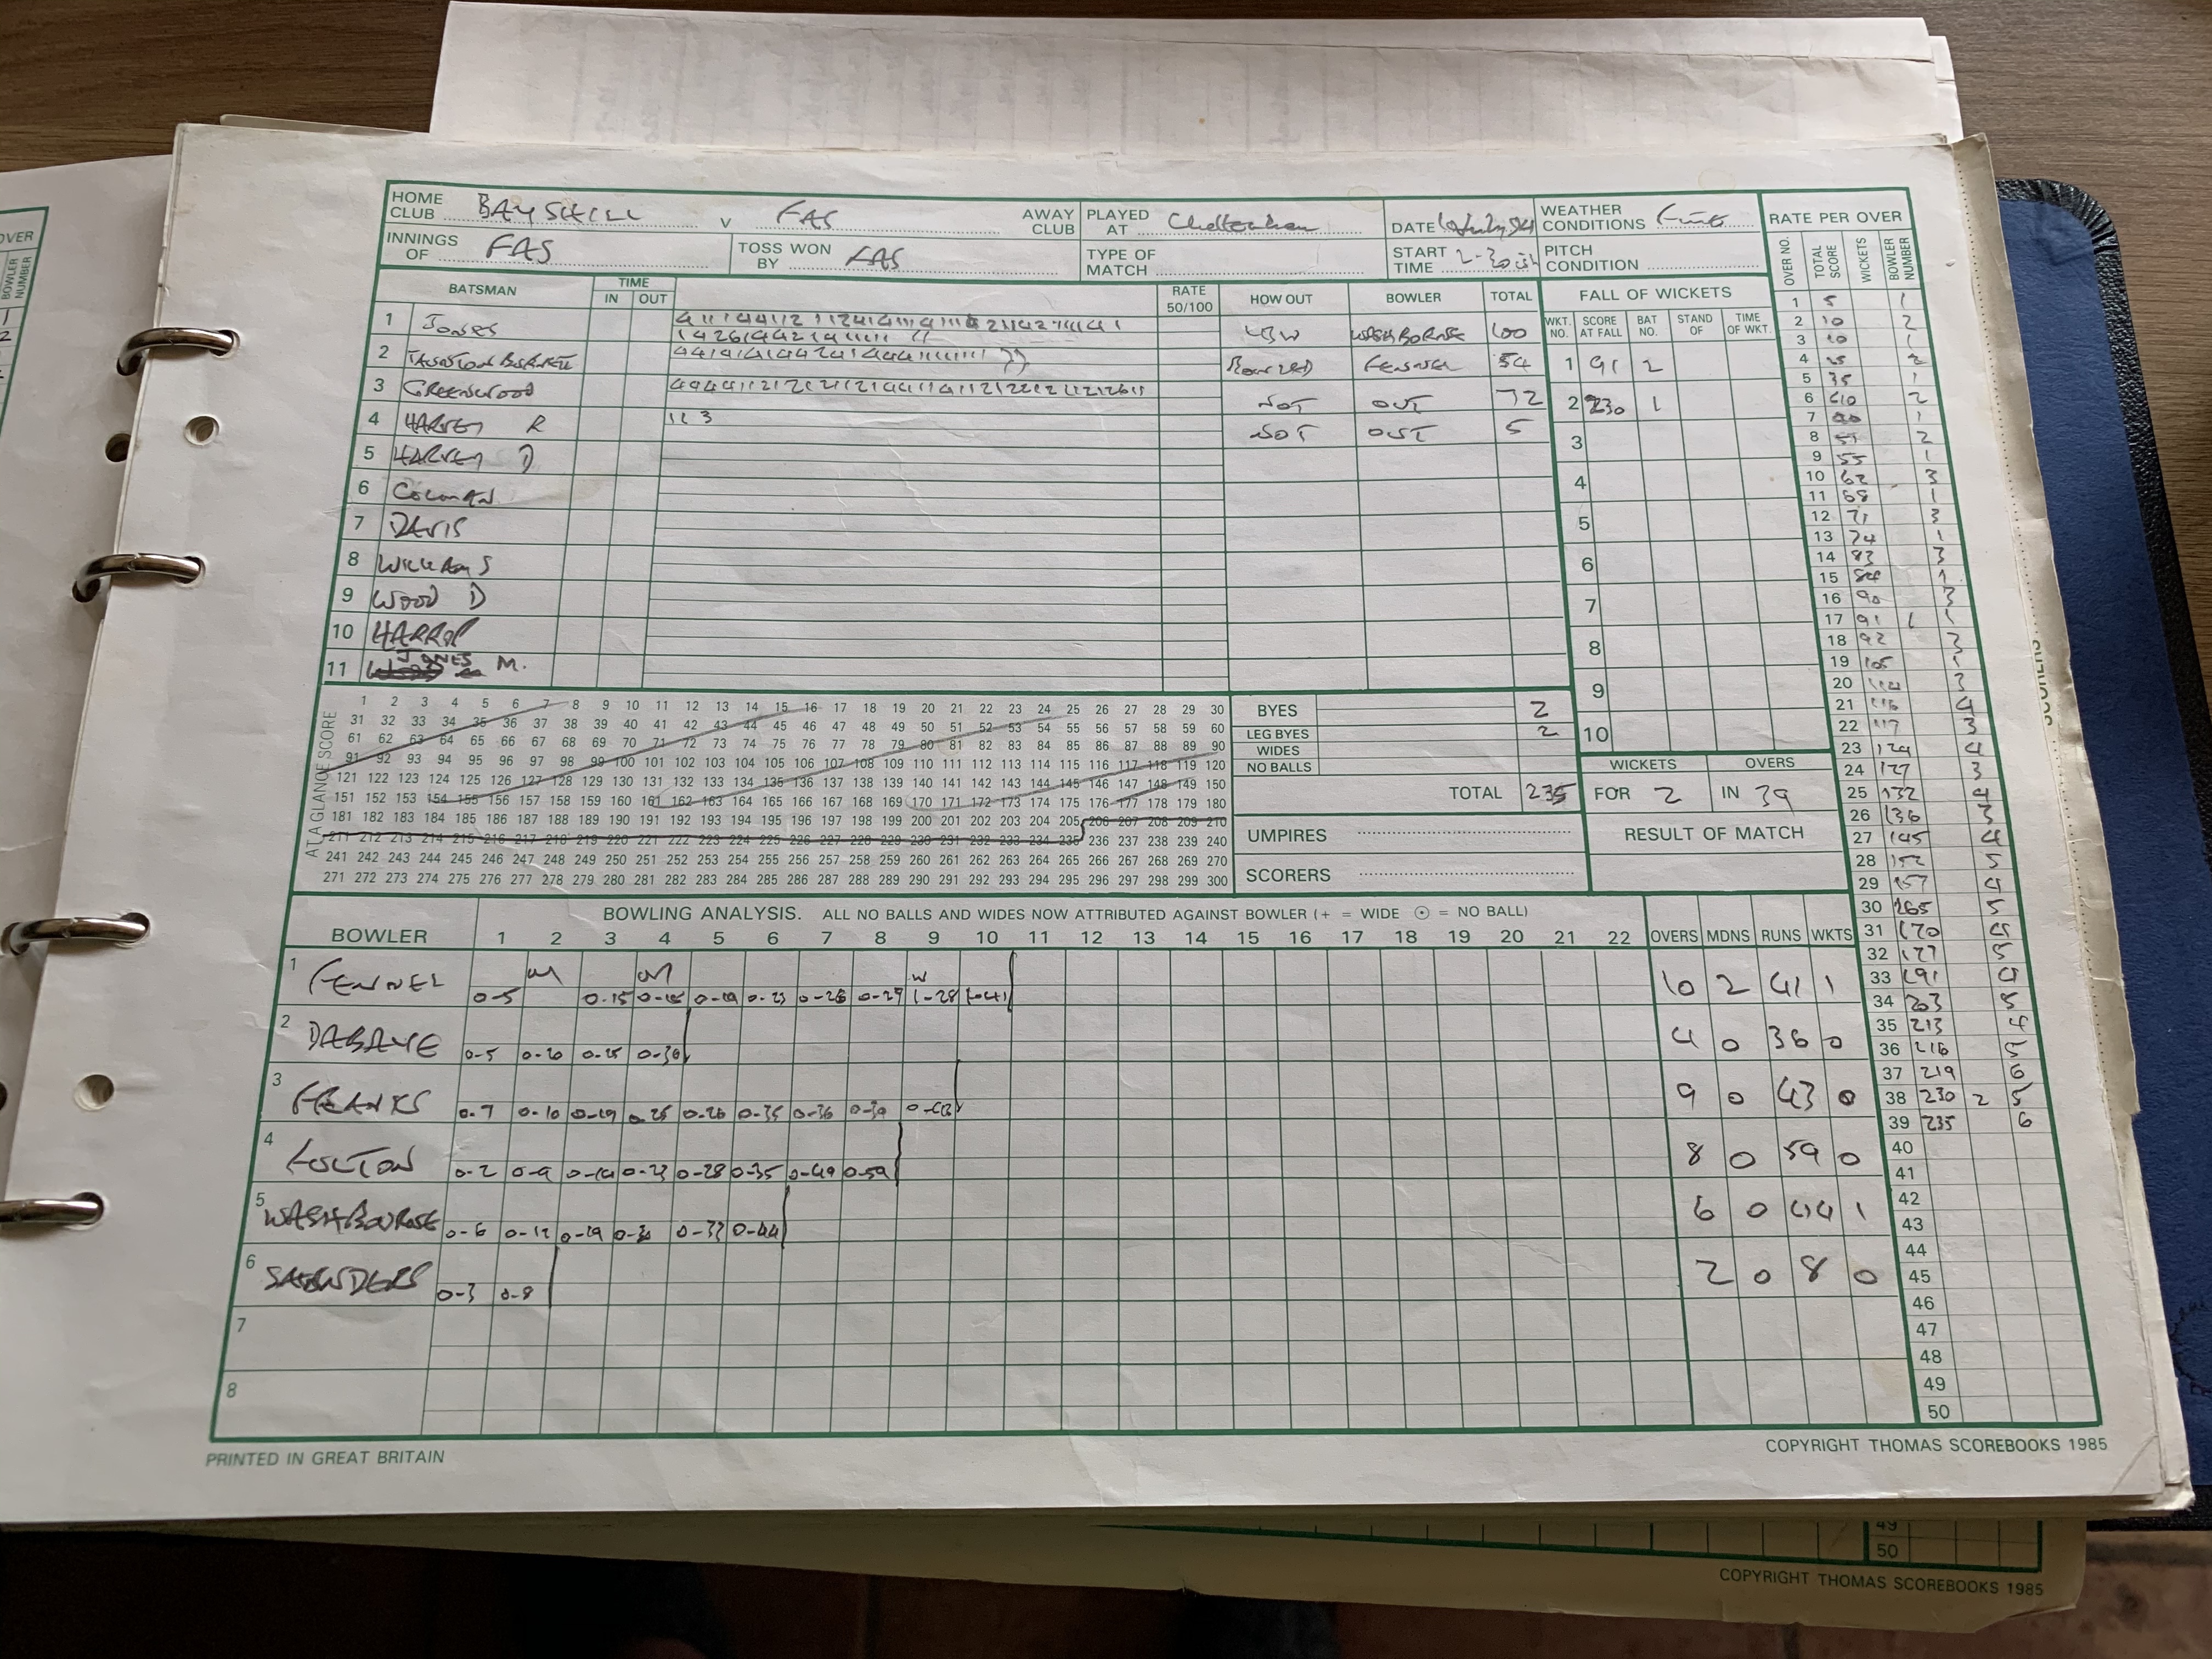 HOME CLUB BAYSHILL V FAS AWAY CLUB
PLAYED AT Cheltenham
DATE July 94
WEATHER CONDITIONS Fine
INNINGS OF FAS
TOSS WON BY FAS
TYPE OF MATCH
START TIME 2-30
PITCH CONDITION
BATSMAN TIME IN OUT RATE 50/100 HOW OUT BOWLER TOTAL
1 JONES LBW WASHBORNE 100
2 BOWLED FENNEL 54
3 GREENWOOD NOT OUT 72
4 HARVEY R 1 1 3 NOT OUT 5
5 HARVEY D
6 COLMAN
7 DAVIS
8 WILLIAMS
9 WOOD D
10 HARROP
11 JONES M.
FALL OF WICKETS
WKT. NO. SCORE AT FALL BAT NO. STAND OF TIME OF WKT.
1 91 2
2 230 1
3
4
5
6
7
8
9
10
AT A GLANCE SCORE
1 2 3 4 5 6 7 8 9 10 11 12 13 14 15 16 17 18 19 20 21 22 23 24 25 26 27 28 29 30
31 32 33 34 35 36 37 38 39 40 41 42 43 44 45 46 47 48 49 50 51 52 53 54 55 56 57 58 59 60
61 62 63 64 65 66 67 68 69 70 71 72 73 74 75 76 77 78 79 80 81 82 83 84 85 86 87 88 89 90
91 92 93 94 95 96 97 98 99 100 101 102 103 104 105 106 107 108 109 110 111 112 113 114 115 116 117 118 119 120
121 122 123 124 125 126 127 128 129 130 131 132 133 134 135 136 137 138 139 140 141 142 143 144 145 146 147 148 149 150
151 152 153 154 155 156 157 158 159 160 161 162 163 164 165 166 167 168 169 170 171 172 173 174 175 176 177 178 179 180
181 182 183 184 185 186 187 188 189 190 191 192 193 194 195 196 197 198 199 200 201 202 203 204 205 206 207 208 209 210
211 212 213 214 215 216 217 218 219 220 221 222 223 224 225 226 227 228 229 230 231 232 233 234 235 236 237 238 239 240
241 242 243 244 245 246 247 248 249 250 251 252 253 254 255 256 257 258 259 260 261 262 263 264 265 266 267 268 269 270
271 272 273 274 275 276 277 278 279 280 281 282 283 284 285 286 287 288 289 290 291 292 293 294 295 296 297 298 299 300
BYES 2
LEG BYES 2
WIDES
NO BALLS
TOTAL 235
UMPIRES
SCORERS
WICKETS OVERS
FOR 2 IN 39
RESULT OF MATCH
BOWLING ANALYSIS. ALL NO BALLS AND WIDES NOW ATTRIBUTED AGAINST BOWLER (+ = WIDE ⊙ = NO BALL)
BOWLER 1 2 3 4 5 6 7 8 9 10 11 12 13 14 15 16 17 18 19 20 21 22 OVERS MDNS RUNS WKTS
1 FENNEL 0-5 M 0-15 M 0-15 0-19 0-23 0-26 0-27 W 1-28 1-41 10 2 41 1
2 0-5 0-20 0-25 0-36 4 0 36 0
3 FRANKS 0-7 0-10 0-19 0-25 0-26 0-35 0-36 0-39 0-43 9 0 43 0
4 0-2 0-9 0-14 0-23 0-28 0-35 0-49 0-59 8 0 59 0
5 WASHBOURNE 0-6 0-12 0-19 0-30 0-33 0-44 6 0 44 1
6 SAUNDERS 0-3 0-8 2 0 8 0
7
8
RATE PER OVER
OVER NO. TOTAL SCORE WICKETS BOWLER NUMBER
1 5 1
2 10 2
3 10 1
4 25 2
5 35 1
6 2
7 1
8 2
9 55 1
10 62 3
11 68 1
12 71 3
13 74 1
14 83 3
15 84 1
16 90 3
17 91 1 1
18 92 3
19 105 1
20 114 3
21 116 4
22 117 3
23 124 4
24 127 3
25 132 4
26 136 3
27 145 4
28 152 5
29 157 4
30 165 5
31 170 4
32 177 5
33 191 4
34 203 5
35 213 4
36 216 5
37 219 6
38 230 2 5
39 235 6
40
41
42
43
44
45
46
47
48
49
50
PRINTED IN GREAT BRITAIN
COPYRIGHT THOMAS SCOREBOOKS 1985
49
50
COPYRIGHT THOMAS SCOREBOOKS 1985
OVER
BOWLER NUMBER
SCORERS